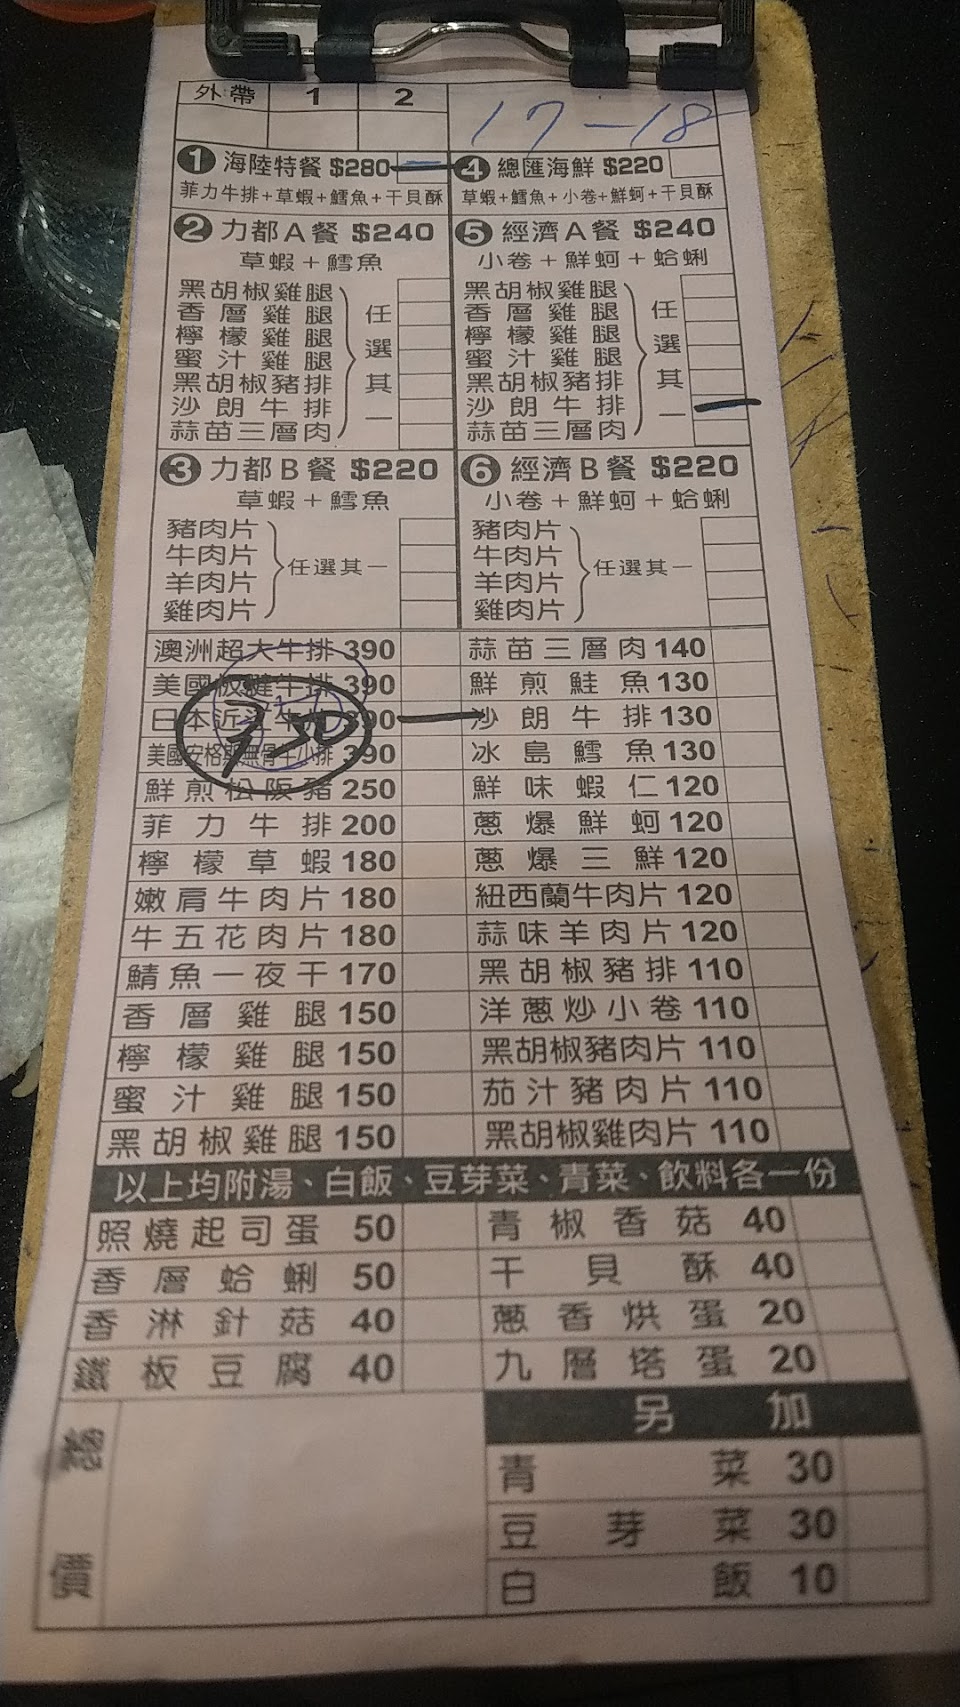 外帶 1 2 17-18
❶ 海陸特餐 $280
菲力牛排+草蝦+鱈魚+干貝酥
❹ 總匯海鮮 $220
草蝦+鱈魚+小卷+鮮蚵+干貝酥
❷ 力都A餐 $240
草蝦+鱈魚
黑胡椒雞腿
香層雞腿
檸檬雞腿
蜜汁雞腿
黑胡椒豬排
沙朗牛排
蒜苗三層肉
任選其一
❺ 經濟A餐 $240
小卷+鮮蚵+蛤蜊
黑胡椒雞腿
香層雞腿
檸檬雞腿
蜜汁雞腿
黑胡椒豬排
沙朗牛排
蒜苗三層肉
任選其一
❸ 力都B餐 $220
草蝦+鱈魚
豬肉片
牛肉片
羊肉片
雞肉片
任選其一
❻ 經濟B餐 $220
小卷+鮮蚵+蛤蜊
豬肉片
牛肉片
羊肉片
雞肉片
任選其一
澳洲超大牛排 390
美國板腱牛排 390
日本近江牛 390
美國安格斯無骨牛小排 390
鮮煎松阪豬 250
菲力牛排 200
檸檬草蝦 180
嫩肩牛肉片 180
牛五花肉片 180
鯖魚一夜干 170
香層雞腿 150
檸檬雞腿 150
蜜汁雞腿 150
黑胡椒雞腿 150
蒜苗三層肉 140
鮮煎鮭魚 130
沙朗牛排 130
冰島鱈魚 130
鮮味蝦仁 120
蔥爆鮮蚵 120
蔥爆三鮮 120
紐西蘭牛肉片 120
蒜味羊肉片 120
黑胡椒豬排 110
洋蔥炒小卷 110
黑胡椒豬肉片 110
茄汁豬肉片 110
黑胡椒雞肉片 110
以上均附湯、白飯、豆芽菜、青菜、飲料各一份
照燒起司蛋 50
香層蛤蜊 50
香淋針菇 40
鐵板豆腐 40
青椒香菇 40
干貝酥 40
蔥香烘蛋 20
九層塔蛋 20
總價
另加
青菜 30
豆芽菜 30
白飯 10